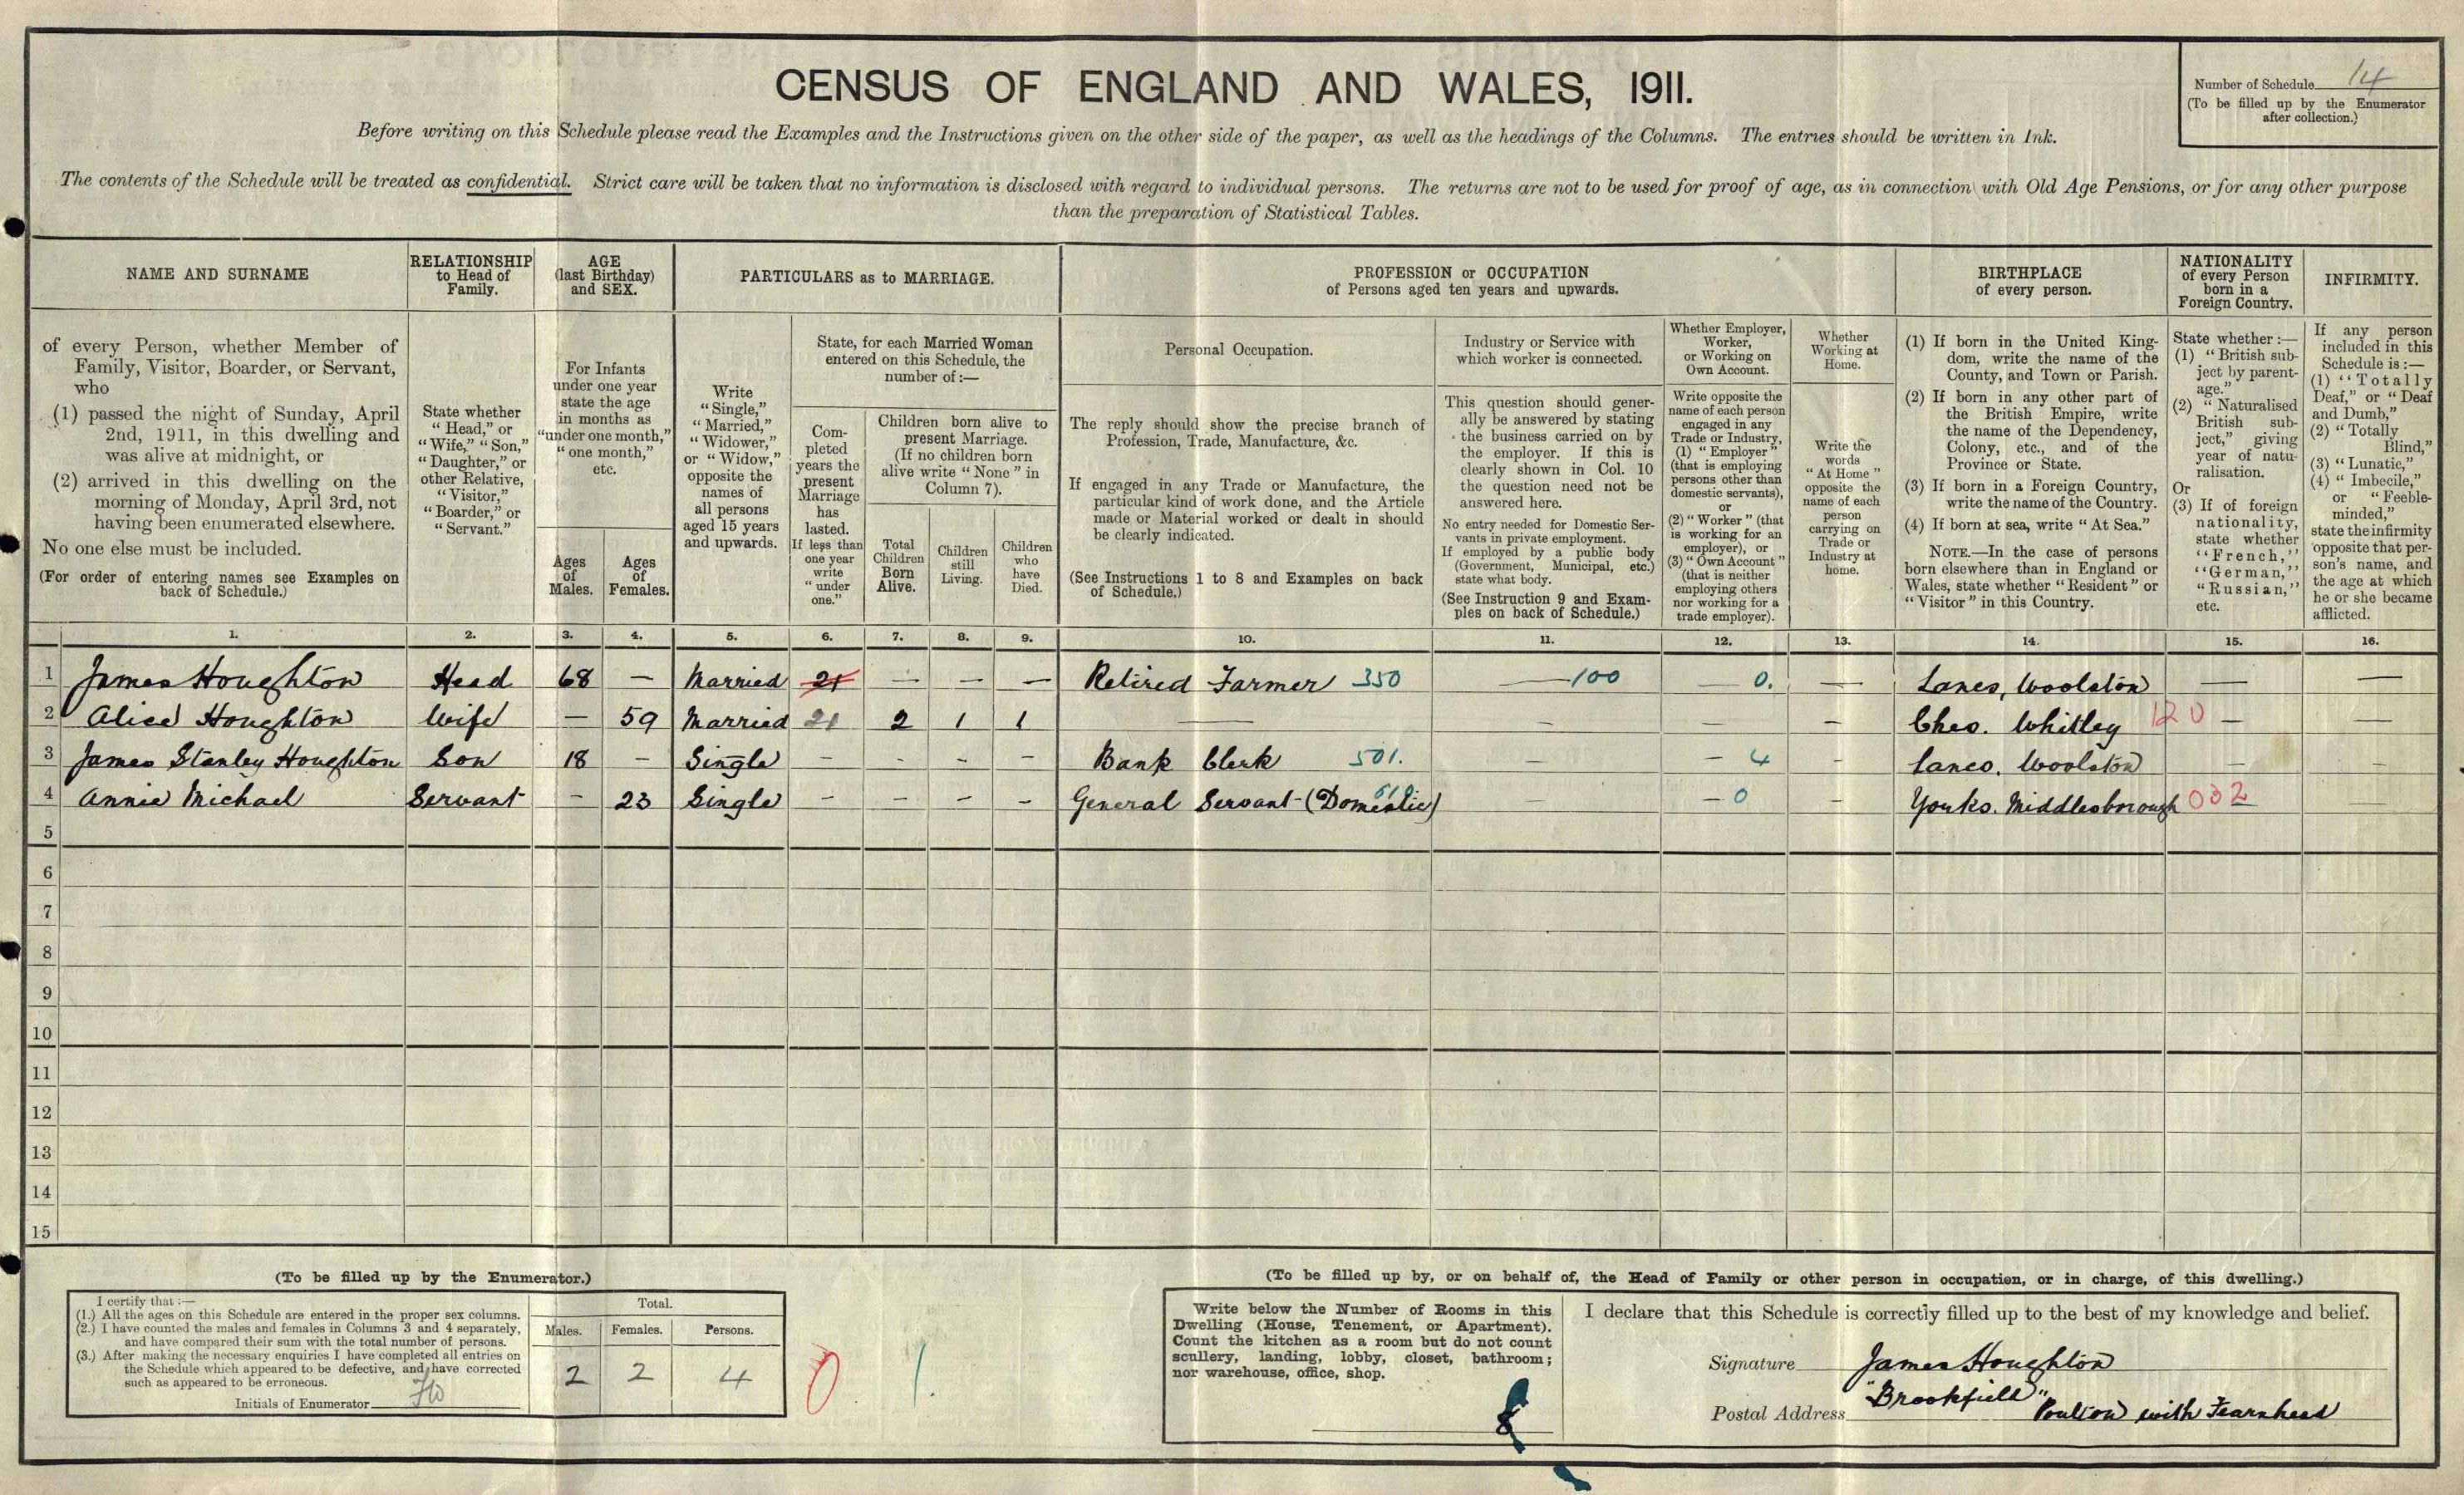 CENSUS OF ENGLAND AND WALES, 1911.
Number of Schedule 14
(To be filled up by the Enumerator
after collection.)
Before writing on this Schedule please read the Examples and the Instructions given on the other side of the paper, as well as the headings of the Columns. The entries should be written in Ink.
The contents of the Schedule will be treated as confidential. Strict care will be taken that no information is disclosed with regard to individual persons. The returns are not to be used for proof of age, as in connection with Old Age Pensions, or for any other purpose
than the preparation of Statistical Tables.
NAME AND SURNAME
RELATIONSHIP
to Head of
Family.
AGE
(last Birthday)
and SEX.
PARTICULARS as to MARRIAGE.
PROFESSION or OCCUPATION
of Persons aged ten years and upwards.
BIRTHPLACE
of every person.
NATIONALITY
of every Person
born in a
Foreign Country.
INFIRMITY.
of every Person, whether Member of
Family, Visitor, Boarder, or Servant,
who
(1) passed the night of Sunday, April
2nd, 1911, in this dwelling and
was alive at midnight, or
(2) arrived in this dwelling on the
morning of Monday, April 3rd, not
having been enumerated elsewhere.
No one else must be included.
(For order of entering names see Examples on
back of Schedule.)
State whether
"Head," or
"Wife," "Son,"
"Daughter," or
other Relative,
"Visitor,"
"Boarder," or
"Servant."
For Infants
under one year
state the age
in months as
"under one month,"
"one month,"
etc.
Ages
of
Males.
Ages
of
Females.
Write
"Single,"
"Married,"
"Widower,"
or "Widow,"
opposite the
names of
all persons
aged 15 years
and upwards.
State, for each Married Woman
entered on this Schedule, the
number of :—
Com-
pleted
years the
present
Marriage
has
lasted.
If less than
one year
write
"under
one."
Children born alive to
present Marriage.
(If no children born
alive write "None" in
Column 7).
Total
Children
Born
Alive.
Children
still
Living.
Children
who
have
Died.
Personal Occupation.
The reply should show the precise branch of
Profession, Trade, Manufacture, &c.
If engaged in any Trade or Manufacture, the
particular kind of work done, and the Article
made or Material worked or dealt in should
be clearly indicated.
(See Instructions 1 to 8 and Examples on back
of Schedule.)
Industry or Service with
which worker is connected.
This question should gener-
ally be answered by stating
the business carried on by
the employer. If this is
clearly shown in Col. 10
the question need not be
answered here.
No entry needed for Domestic Ser-
vants in private employment.
If employed by a public body
(Government, Municipal, etc.)
state what body.
(See Instruction 9 and Exam-
ples on back of Schedule.)
Whether Employer,
Worker,
or Working on
Own Account.
Write opposite the
name of each person
engaged in any
Trade or Industry,
(1) "Employer"
(that is employing
persons other than
domestic servants),
or
(2) "Worker" (that
is working for an
employer), or
(3) "Own Account"
(that is neither
employing others
nor working for a
trade employer).
Whether
Working at
Home.
Write the
words
"At Home"
opposite the
name of each
person
carrying on
Trade or
Industry at
home.
(1) If born in the United King-
dom, write the name of the
County, and Town or Parish.
(2) If born in any other part of
the British Empire, write
the name of the Dependency,
Colony, etc., and of the
Province or State.
(3) If born in a Foreign Country,
write the name of the Country.
(4) If born at sea, write "At Sea."
NOTE.—In the case of persons
born elsewhere than in England or
Wales, state whether "Resident" or
"Visitor" in this Country.
State whether :—
(1) "British sub-
ject by parent-
age."
(2) "Naturalised
British sub-
ject," giving
year of natu-
ralisation.
Or
(3) If of foreign
nationality,
state whether
"French,"
"German,"
"Russian,"
etc.
If any person
included in this
Schedule is :—
(1) "Totally
Deaf," or "Deaf
and Dumb,"
(2) "Totally
Blind,"
(3) "Lunatic,"
(4) "Imbecile,"
or "Feeble-
minded,"
state the infirmity
opposite that per-
son's name, and
the age at which
he or she became
afflicted.
1. 2. 3. 4. 5. 6. 7. 8. 9. 10. 11. 12. 13. 14. 15. 16.
1 James Houghton Head 68 — Married 21 — — — Retired Farmer 350 — 100 — 0. — Lancs, Woolston — —
2 Alice Houghton Wife — 59 Married 21 2 1 1 — — — — Ches. Whitley 120 — —
3 James Stanley Houghton Son 18 — Single — — — — Bank Clerk 501. — — 4 — Lancs. Woolston — —
4 Annie Michael Servant — 23 Single — — — — General Servant - (Domestic) — — 0 — Yorks. Middlesborough 032 —
5
6
7
8
9
10
11
12
13
14
15
(To be filled up by the Enumerator.)
I certify that :—
(1.) All the ages on this Schedule are entered in the proper sex columns.
(2.) I have counted the males and females in Columns 3 and 4 separately,
and have compared their sum with the total number of persons.
(3.) After making the necessary enquiries I have completed all entries on
the Schedule which appeared to be defective, and have corrected
such as appeared to be erroneous.
Initials of Enumerator
Total.
Males. Females. Persons.
2 2 4
0 1.
(To be filled up by, or on behalf of, the Head of Family or other person in occupation, or in charge, of this dwelling.)
Write below the Number of Rooms in this
Dwelling (House, Tenement, or Apartment).
Count the kitchen as a room but do not count
scullery, landing, lobby, closet, bathroom;
nor warehouse, office, shop.
8
I declare that this Schedule is correctly filled up to the best of my knowledge and belief.
Signature James Houghton
Postal Address "Brookfield" Poulton with Fearnhead